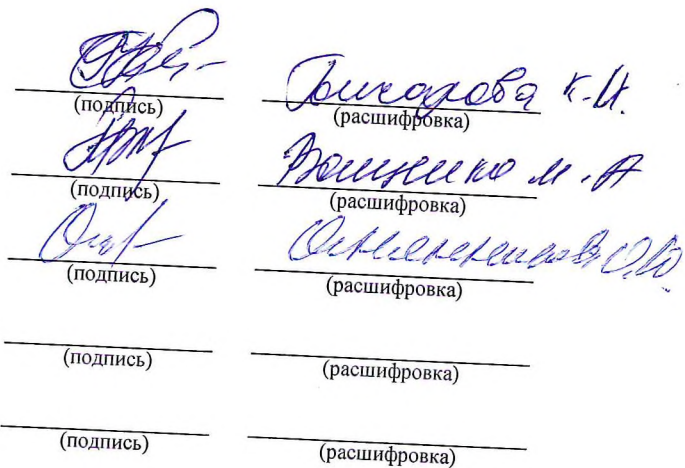 К.И.
(подпись) (расшифровка)
Ващенко М.А
(подпись) (расшифровка)
О.Ю.
(подпись) (расшифровка)
(подпись) (расшифровка)
(подпись) (расшифровка)